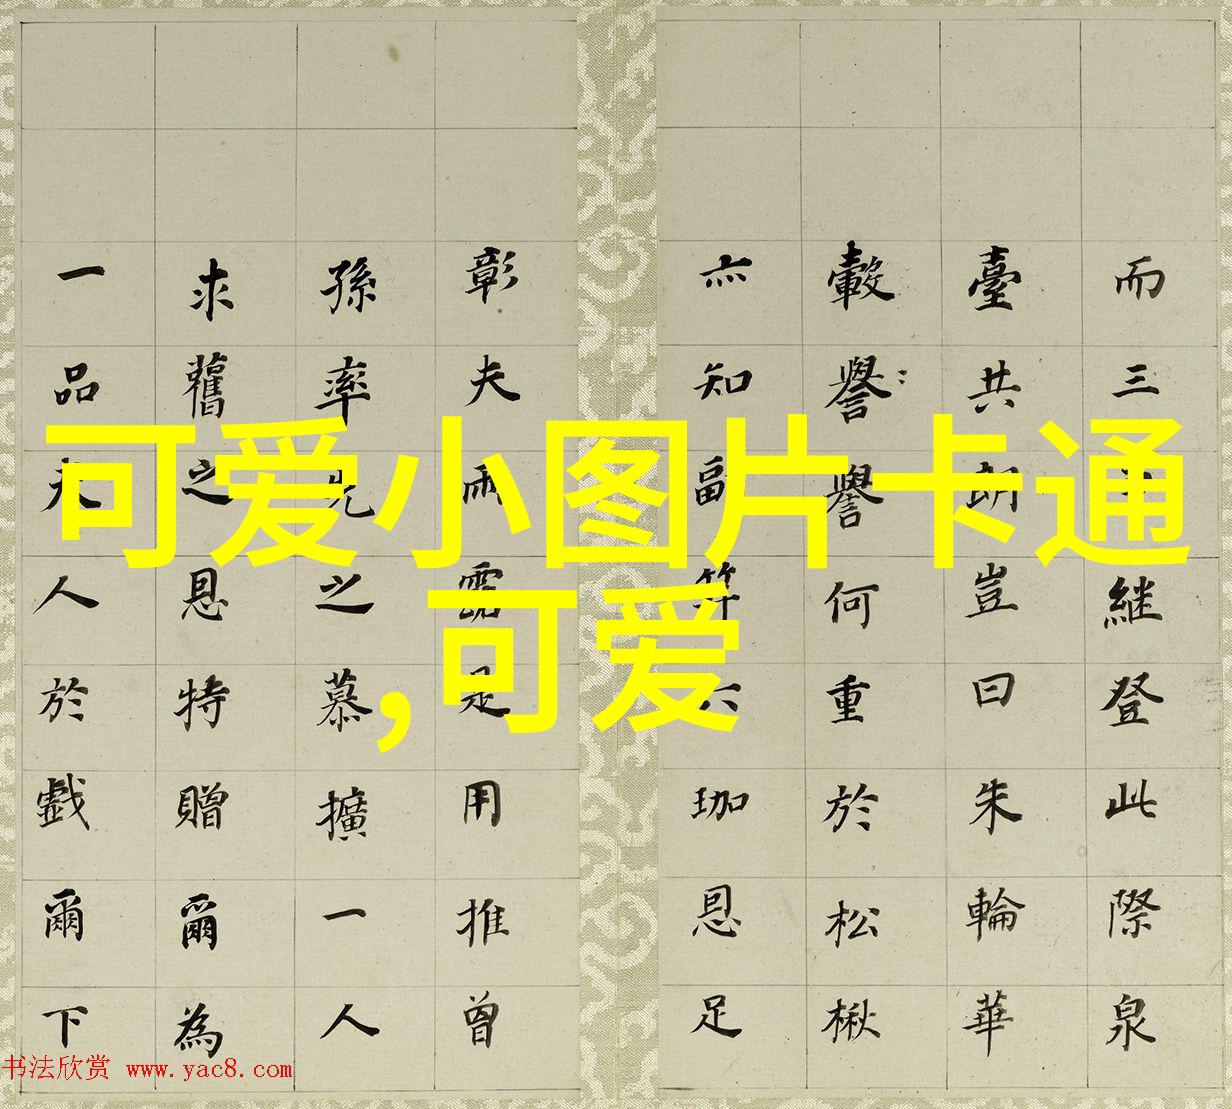 而三継登此際泉
臺共朗豈曰朱輪華
轂譽譽何重於松楸
亦知副笄六珈恩足
彰夫雨露是用推曾
孫率先之慕擴一人
求舊之恩特贈爾為
一品夫人於戲爾下
可爱小图片卡通
,可爱
书法欣赏 www.yac8.com